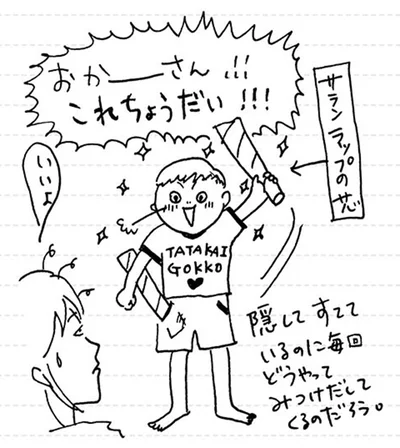 おかーさん!!!
これちょうだい!!!
サランラップの芯
いいよ
TATAKAI
GOKKO
隠してすてて
いるのに毎回
どうやって
みつけだして
くるのだろう。